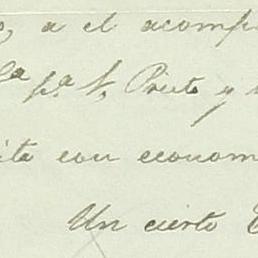 a el acomp
pª. S. Prieto y
ita con econom
Un cierto